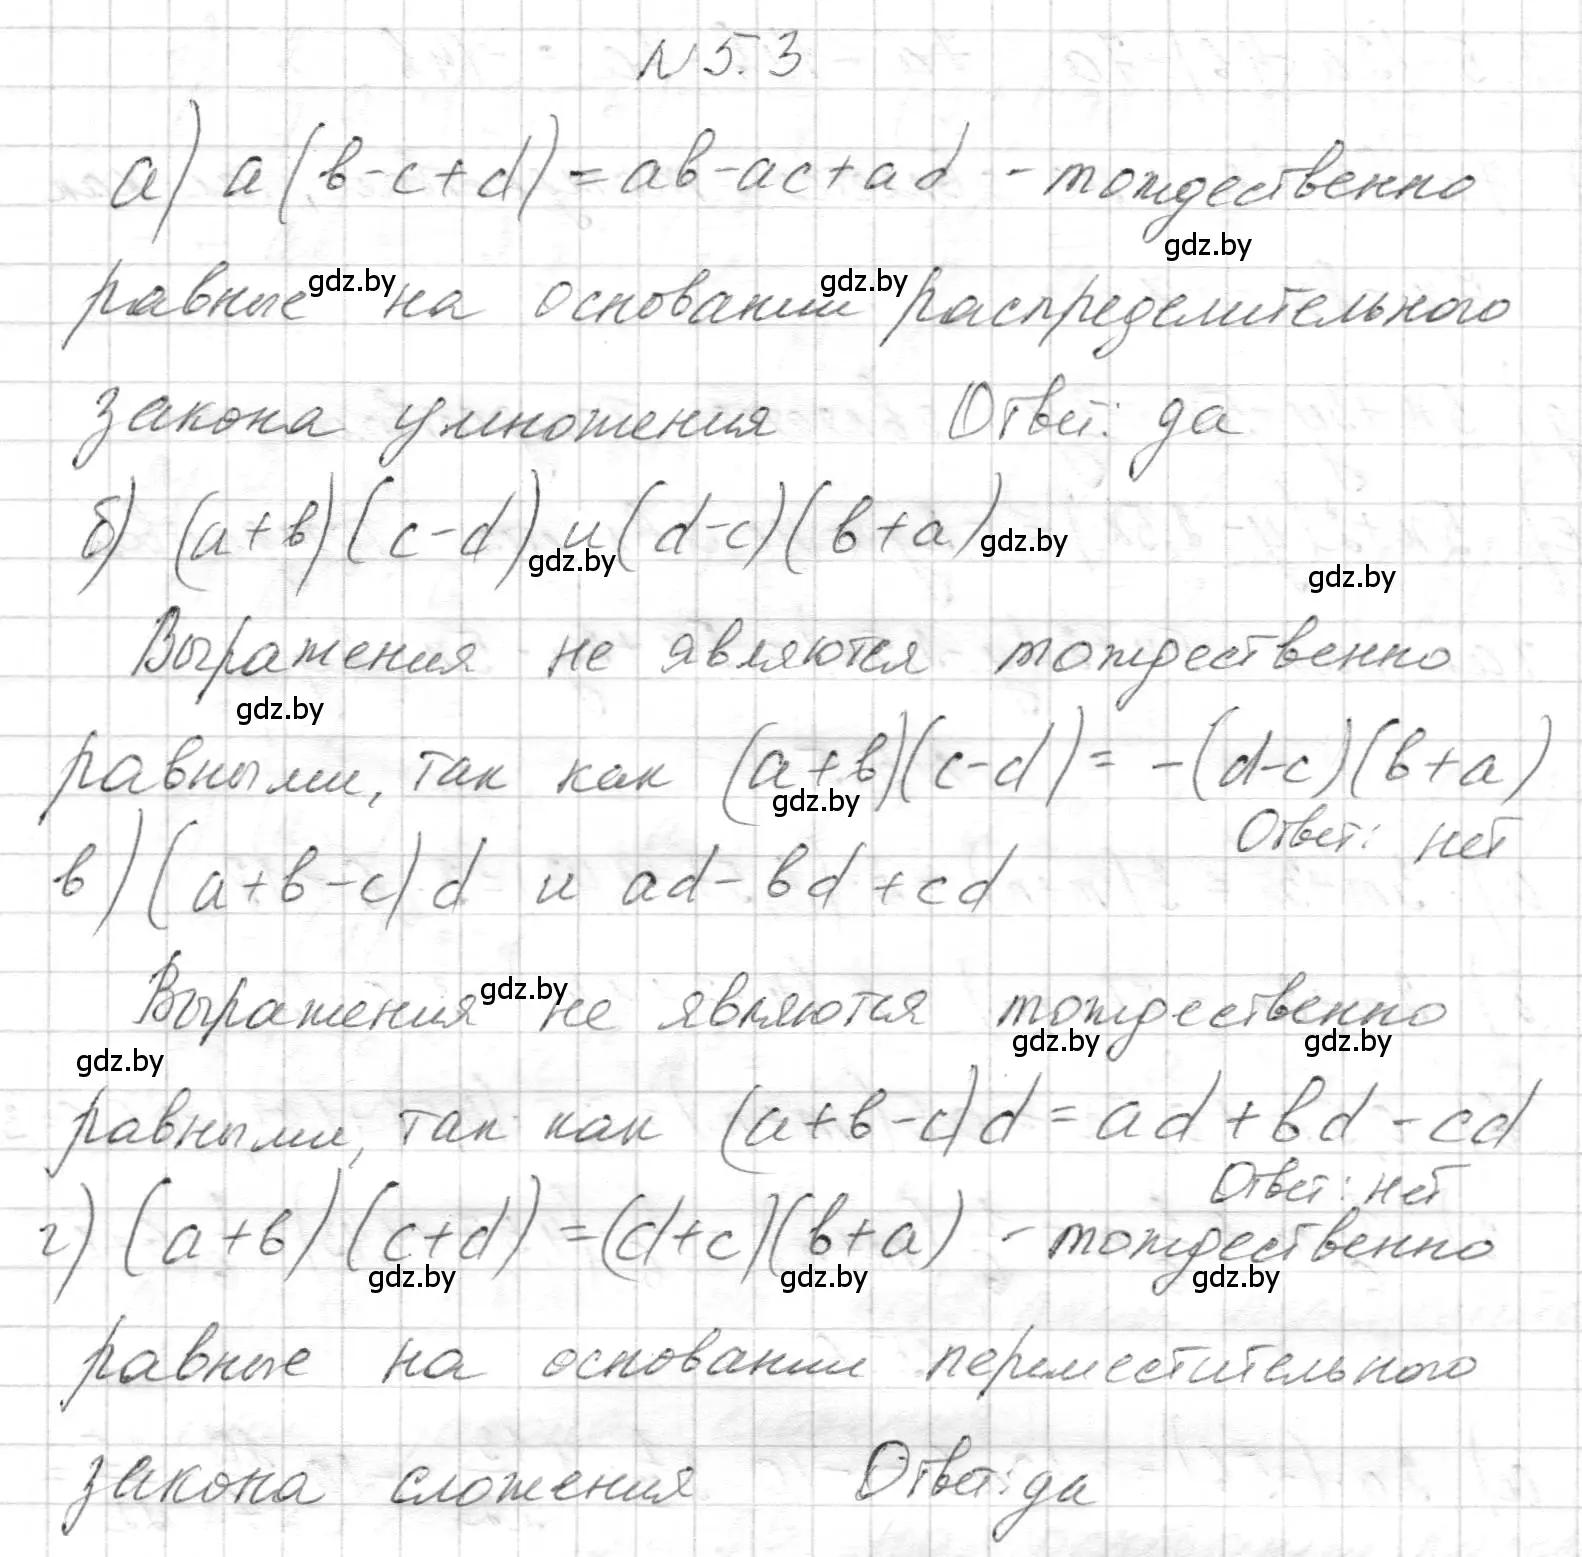 N 5.3
а) a(в-c+d)=aв-ac+ad - тождественно
gdz.by
равные на основании распределительного
gdz.by gdz.by
закона умножения Ответ: да
б) (a+в)(c-d) и (d-c)(в+a)
gdz.by gdz.by gdz.by
Выражения не являются тождественно
gdz.by
равными, так как (a+в)(c-d)= -(d-c)(в+a)
gdz.by
Ответ: нет
в) (a+в-c)d и ad-вd+cd
Выражения не являются тождественно
gdz.by gdz.by gdz.by
gdz.by
равными, так как (a+в-c)d=ad+вd-cd
Ответ: нет
г) (a+в)(c+d)=(d+c)(в+a) - тождественно
gdz.by gdz.by gdz.by
равные на основании переместительного
закона сложения Ответ: да